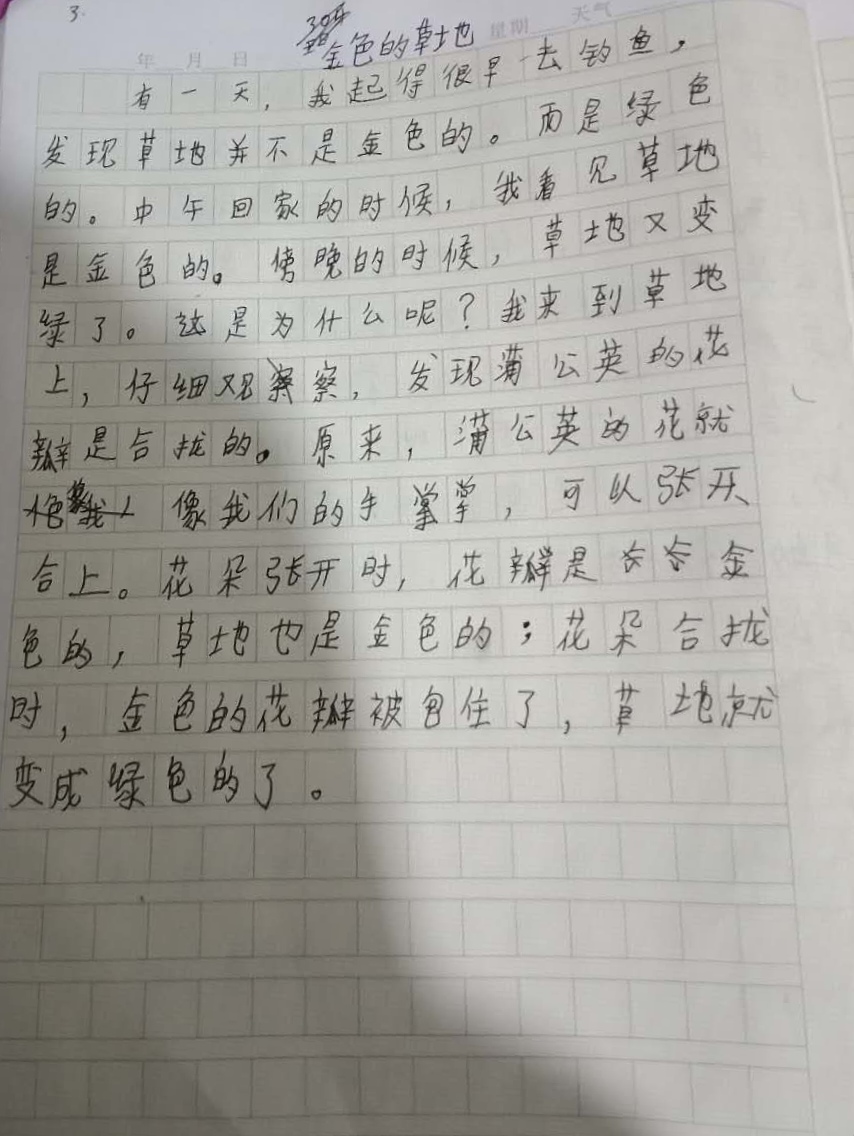 3.
星期 天气
金色的草地
年 月 日
有一天，我起得很早去钓鱼，
发现草地并不是金色的。而是绿色
的。中午回家的时候，我看见草地
是金色的。傍晚的时候，草地又变
绿了。这是为什么呢？我来到草地
上，仔细观察，发现蒲公英的花
瓣是合拢的。原来，蒲公英的花就
像我们的手掌，可以张开
合上。花朵张开时，花瓣是金
色的，草地也是金色的；花朵合拢
时，金色的花瓣被包住了，草地就
变成绿色的了。